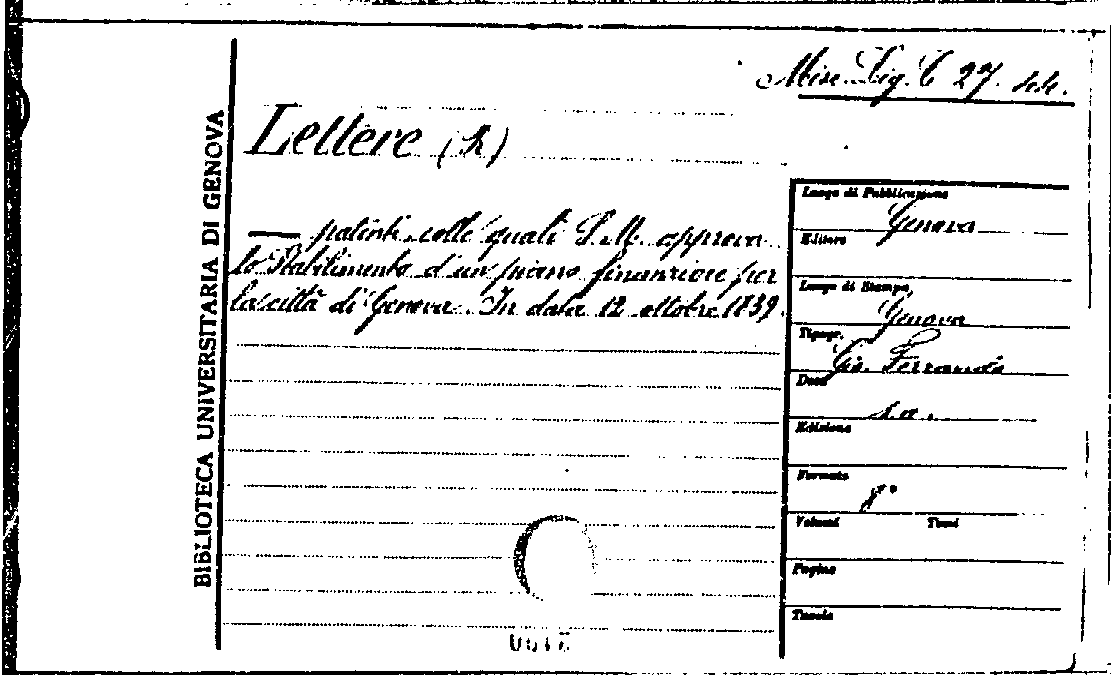 Misc. Lig. C 27. 44.
BIBLIOTECA UNIVERSITARIA DI GENOVA
Lettere (R)
— patenti colle quali S. M. approva
lo Stabilimento d'un piano finanziere per
la città di Genova. In data 12 ottobre 1839.
Luogo di Pubblicazione
Genova
Editore
Luogo di Stampa
Genova
Tipogr.
Gio. Ferrando
Data
s.a.
Edizione
Formato
8°
Volumi Tomi
Pagine
Tavole